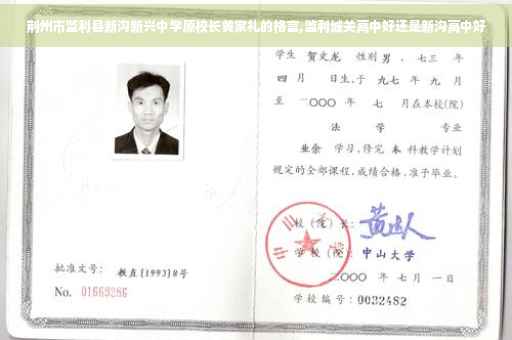 荆州市监利县新沟新兴中学原校长黄家礼的格言,监利城关高中好还是新沟高中好
学生 贺文龙 性别 男 、七三 年
四 月 日生,于 九七 年 九 月
至 二〇〇〇 年 七 月在本校(院)
法 学 专业
业余 学习,修完 本 科教学计划
规定的全部课程,成绩合格,准予毕业。
校(院)长:
学校(院) 中山大学
二〇〇〇 年 七 月 一 日
学校编号:0032482
批准文号: 教直(1993)8号
No. 01669286